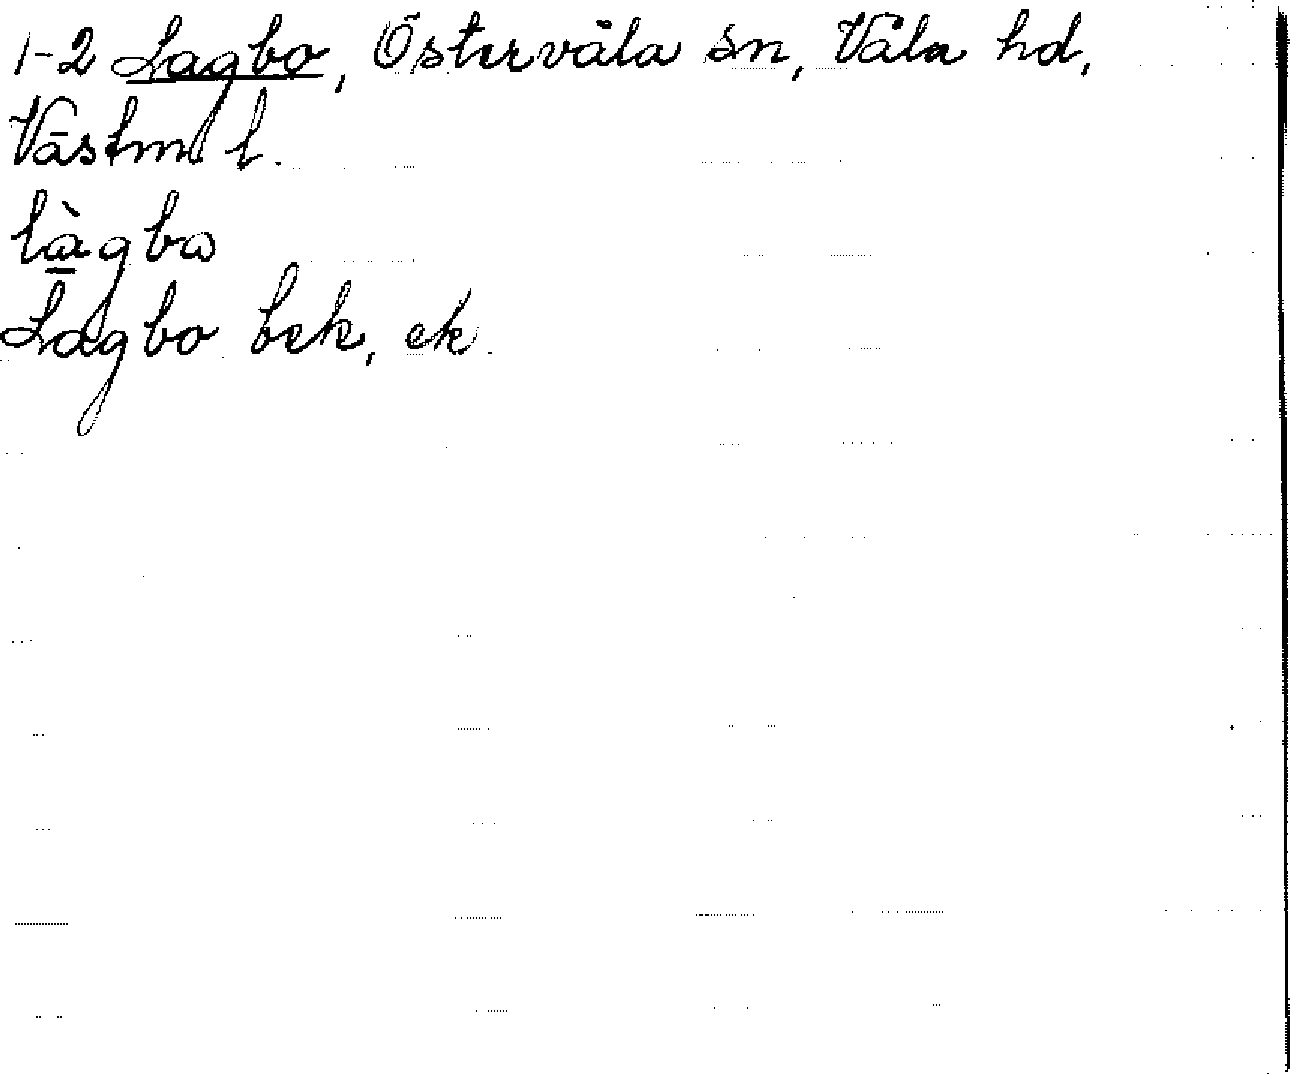 1-2 Lagbo, Östervåla sn, Våla hd,
Västml l.
làgbω
Lagbo bek, ek.